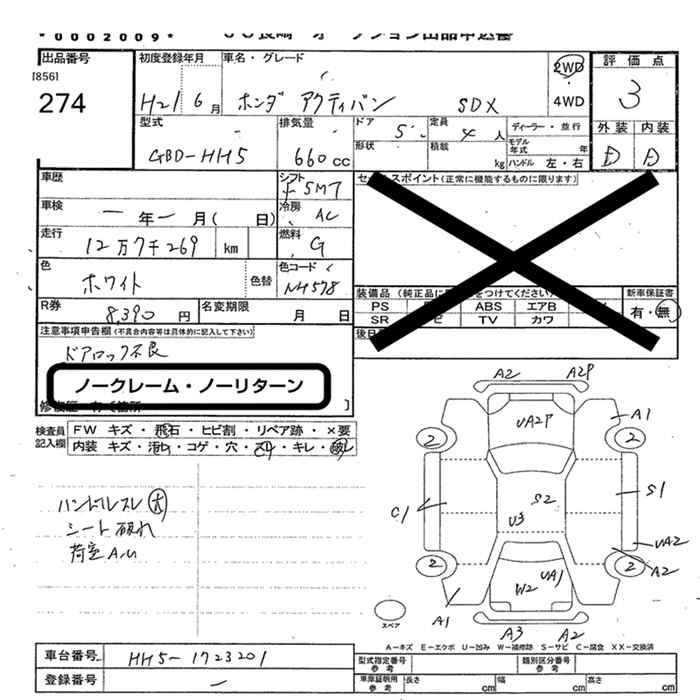 *0002009*
出品番号 初度登録年月 車名・グレード 2WD 評価点
[856]
274 H21 6月 ホンダ アクティバン SDX 4WD 3
型式 排気量 ドア 5 定員 4人 ディーラー・並行 外装 内装
GBD-HH5 660cc 形状 積載 kg モデル年式 年 ハンドル 左・右 D D
車歴 シフト F5MT セールスポイント(正常に機能するものに限ります)
車検 一年一月( 日) 冷房 AC
走行 12万7千269 km 燃料 G
色 ホワイト 色替 色コード NH578
装備品 新車保証書
PS ABS エアB 有・無
SR TV カワ
R券 8,390円 名変期限 月 日
後日
注意事項申告欄(不具合内容等は具体的に記入して下さい)
ドアロック不良
ノークレーム・ノーリターン
検査員記入欄 FW キズ・飛石・ヒビ割・リペア跡・×要
内装 キズ・汚れ・コゲ・穴・スレ・キレ・破レ
ハンドルスレ 大
シート破れ
荷室A、U
A2 A2P
UA2P A1
2 2
C1 S2 S1
U3
UA2
2 2
A2
W2 UA1
A1
A3 A2
スペア
A-キズ E-エクボ U-凹み W-補修跡 S-サビ C-腐食 XX-交換済
車台番号 HH5-1723201 型式指定番号 参考 類別区分番号 参考
登録番号 — 車庫証明用 参考 長さ cm 幅 cm 高さ cm